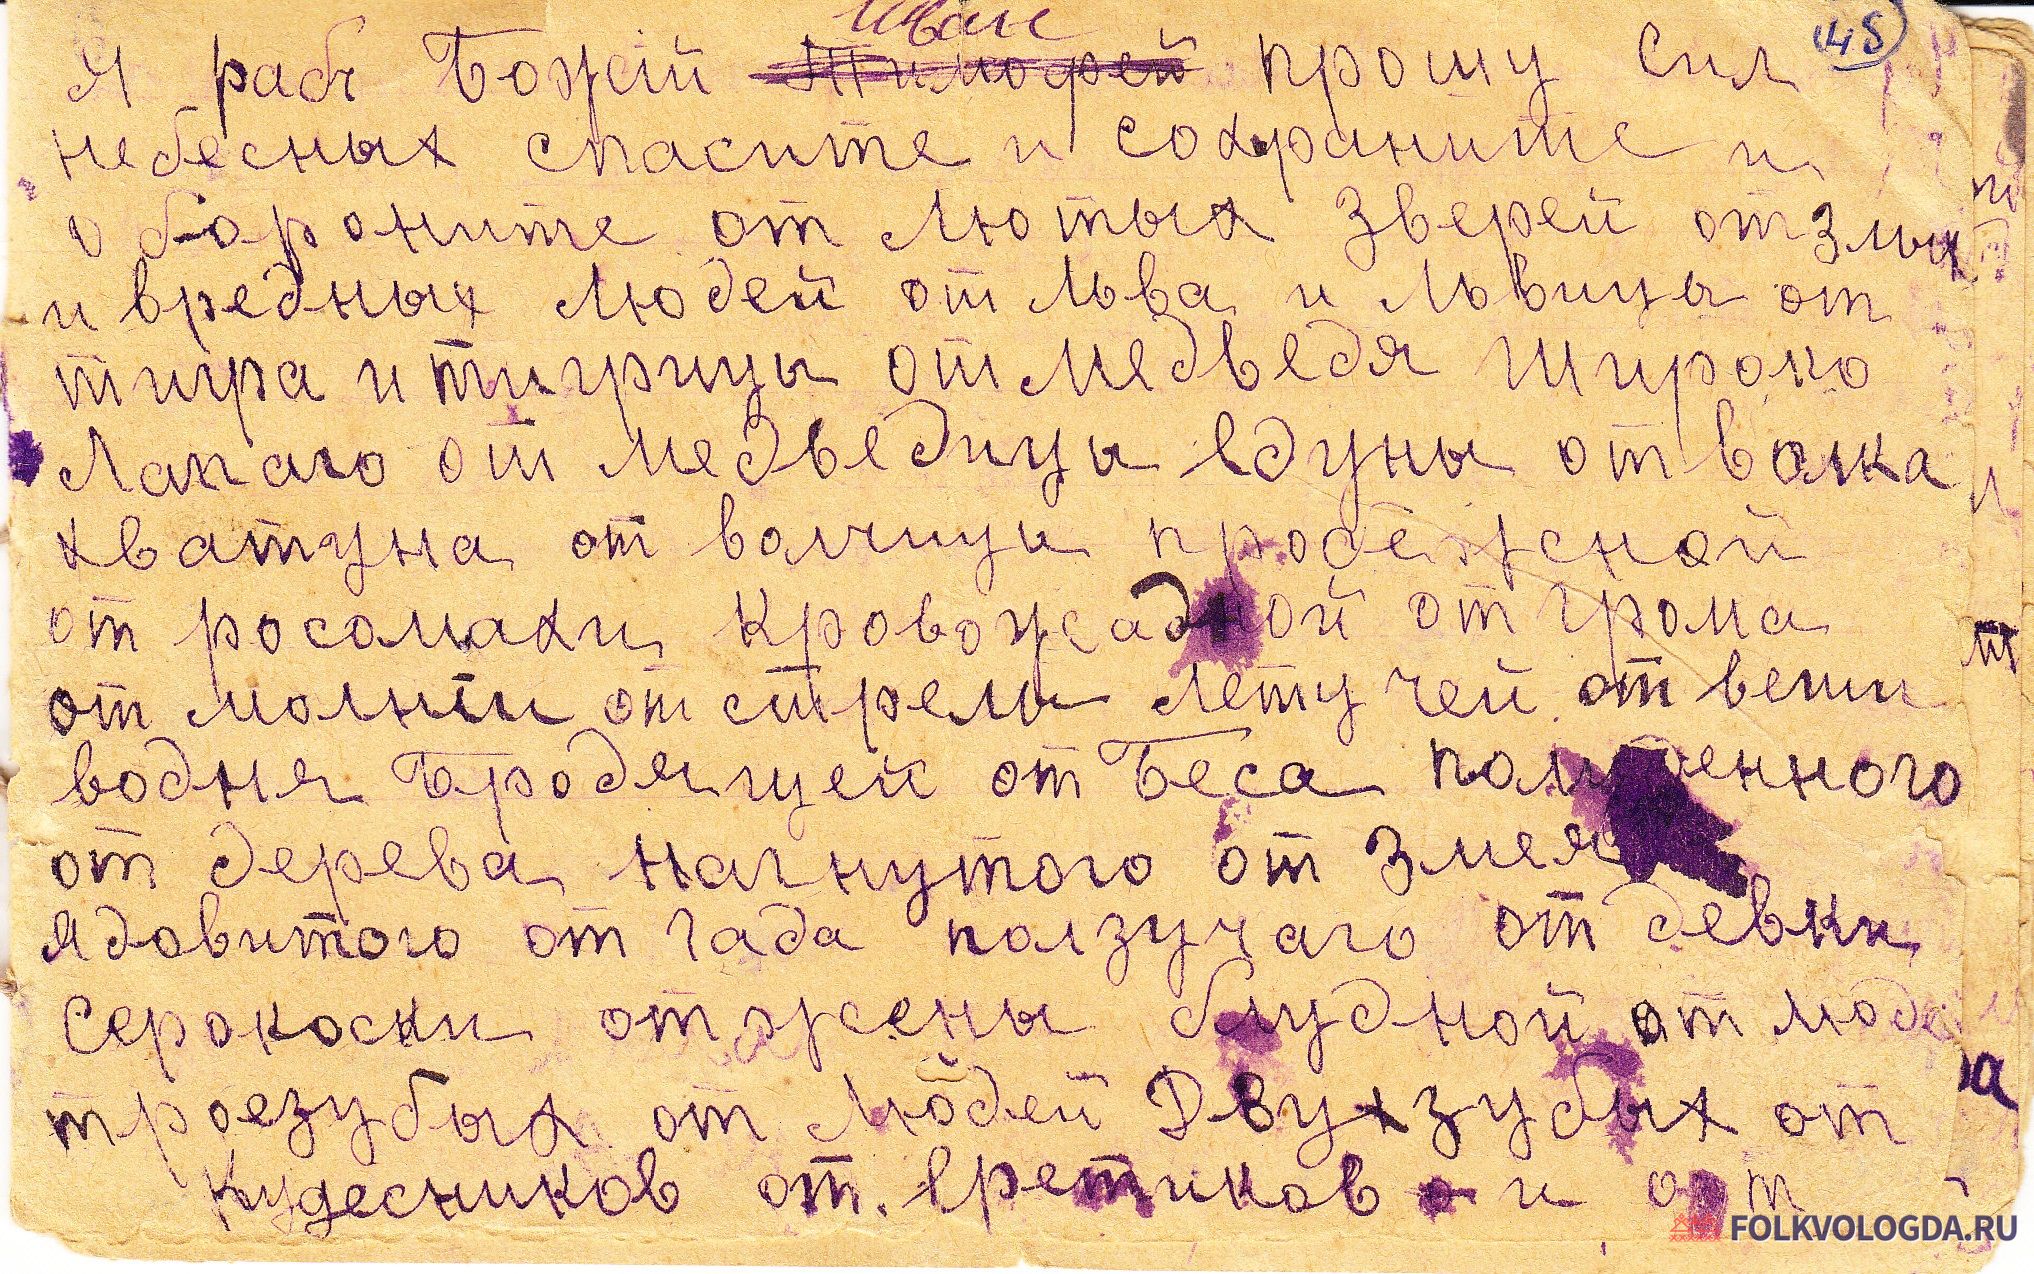 Иван
Я рабъ Божій Тимофей прошу Сил 48
небесных спасите и сохраните и
обороните от лютых зверей от злых
и вредных людей от льва и львицы от
тигра и тигрицы от медведя широко
лапаго от медведицы едуны от волка
хватуна от волчицы пробежной
от росомахи кровожадной от грома
от молніи от стрелы летучей от вещи
водня бродящей от беса полуденного
от дерева нагнутого от змея
ядовитого от гада ползучаго от девки
серокоски от жены блудной от люде
троезубых от людей двухзубых от
кудесников от еретиков и от
FOLKVOLOGDA.RU